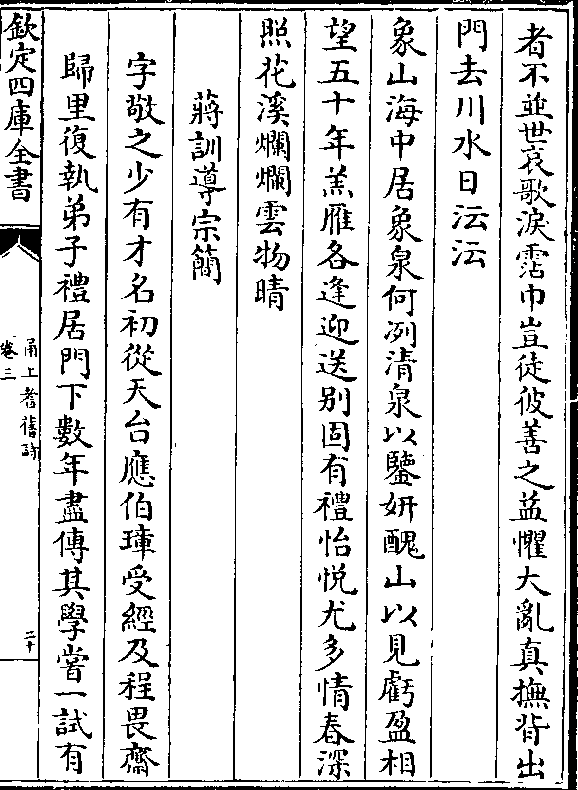 者不並世哀歌淚霑巾豈徒彼善之益懼大亂真撫背出
門去川水日沄沄
象山海中居象泉何冽清泉以鑒妍醜山以見虧盈相
望五十年羔雁各逢迎送别固有禮怡悦尤多情春深
照花溪爛爛雲物晴
蔣訓導宗簡
字敬之少有才名初從天台應伯㻮受經及程畏齋
歸里復執弟子禮居門下數年盡傳其學嘗一試有
欽定四庫全書
甬上耆舊詩
卷三
二十